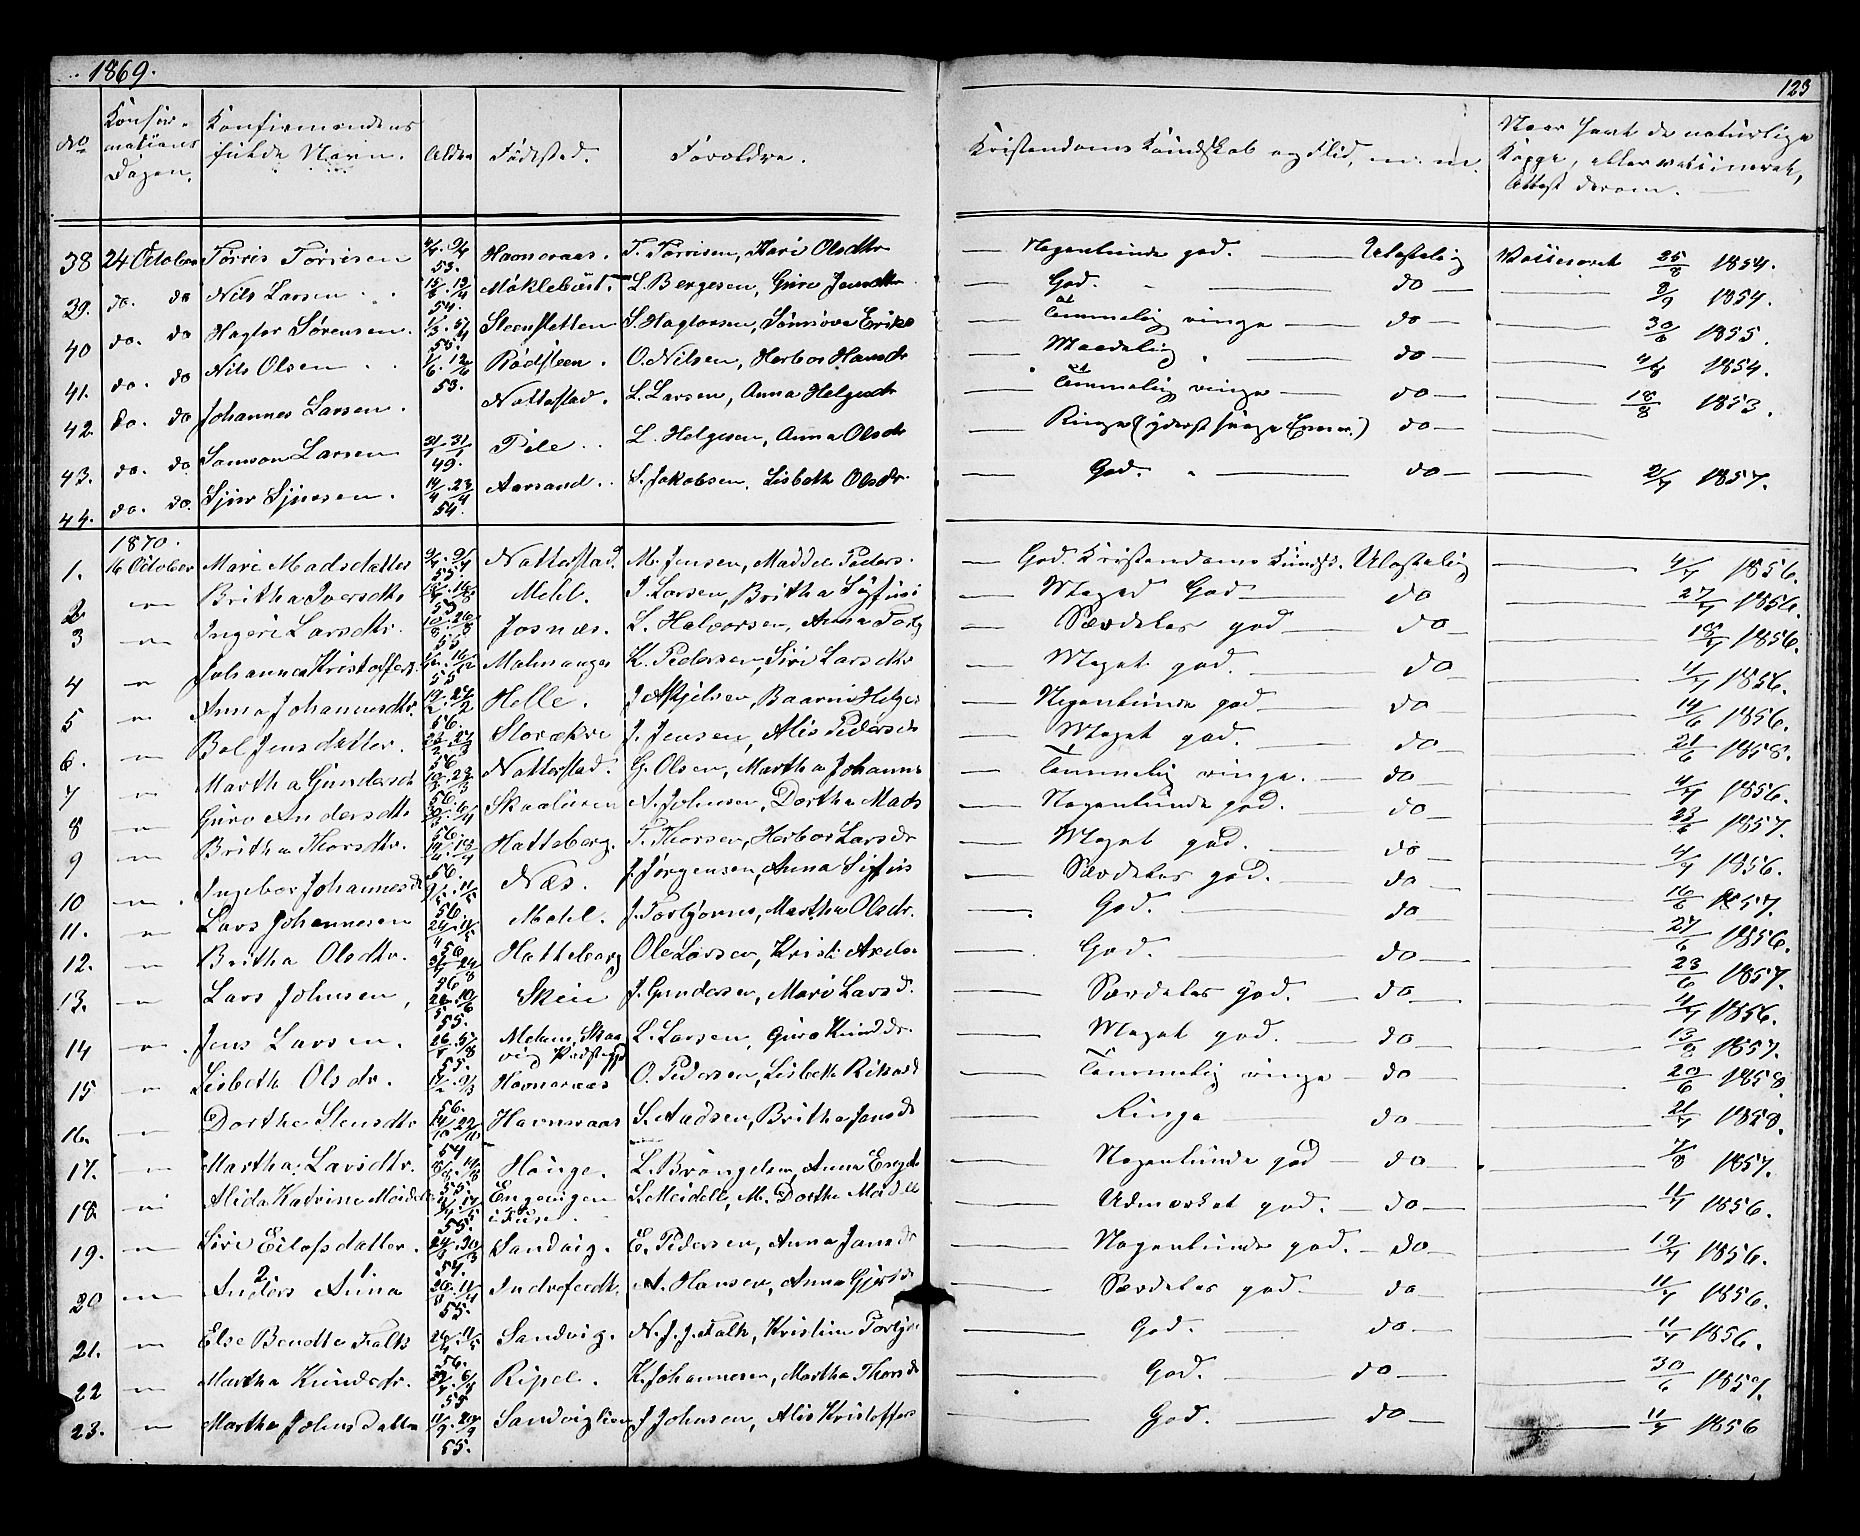 1869.
123
No
Konfir-
mations
Dagen.
Konfirmandens
fulde Navn.
Alder
Födested.
Forældre.
Kristendoms Kundskab og Flid, m. m.
Naar havt de naturlige
Kopper, eller vaccineret,
Attest derom.
38 24 October Torris Torrisen 53. Havneraas. T. Torrisen, Kari Olsdtr — Nogenlunde god. — Ulastelig Vaccineret 25/8 1854.
39. do. do Nils Larsen 15/3. 12/4 54. Møklebust. L. Bergesen, Guro Jensdtr — God. — do — 8/9 1854.
40 do. do Hagtor Sørensen. 55. Steensletten S. Hagtorsen, Sønnøva Eriks — Temmelig ringe — do — 30/6 1855.
41. do. do Nils Olsen 1/6. 12/6 53. Rödsteen. O. Nilsen, Herbor Hansdr — Maadelig — do — 1854.
42. do. do Johannes Larsen. Nattestad. L. Larsen, Anna Helgesdr — Temmelig ringe — do — 18/8 1853.
43. do. do Samson Larsen 31/1. 31/1 49. Tele L. Helgesen, Anna Olsdr — Ringe (yderst svage Evner.) do —
44. do. do. Sjur Sjursen. 14/4. 23/4 54. Aarsand. S. Jakobsen, Lisbeth Olsdr. — God. — do — 2/7 1857.
1870.
1. 16 October Mari Madsdatter 55. Nattestad. M. Jensen, Maddele Peders. — God Kristendoms Kundsk. Ulastelig — 4/7 1856.
2 — Britha Iversdtr 53 Mehl. I. Larsen, Britha Sjfusi — Meget God — do — 27/7 1856.
3 — Ingeri Larsdtr. 10/8. 26/8 55 Josnæs. L. Halvorsen, Anna Torbj — Særdeles god — do — 18/7 1856.
4 — Johannes Kristoffers. 55 Malmanger K. Pedersen, Siri Larsdtr — Meget god. — do — 11/7 1856.
5 — Anna Johannesdtr. 19/2. 27/2 56. Helle. J. Askjelsen, Baarni Helges — Nogenlunde god — do — 14/6 1856.
6. — Bol Jensdatter. 56 Storækre J. Jensen, Alis Pedersdr — Meget god. — do — 21/6 1858.
7 — Martha Gundersdr 56. Nattestad. G. Olsen, Martha Johanns — Temmelig ringe. — do — 4/7 1856.
8 — Guro Andersdtr 56. Skaaluren A. Johnsen, Dortha Mads — Nogenlunde god. — do — 23/6 1857.
9 — Britha Thorsdtr. 56. Hatteberg. T. Thorsen, Herbor Larsdr — Meget god. — do — 4/7 1856.
10 — Ingebor Johannesdr 56. Næs. J. Jørgensen, Anna Sigfus — Særdeles god. — do — 16/8 1857.
11. — Lars Johannesen 56 Mehl. J. Torbjørns, Martha Olsdr. — God. — do — 27/6 1856.
12. — Britha Olsdtr. 56 Hatteberg Ole Larsen, Kristi — God. — do — 23/6 1857.
13. — Lars Johnsen, 55. Skeie J. Gundersen, Mari Larsd. — Særdeles god. — do — 11/7 1856.
14 — Jens Larsen. 55. Melum, Skaa-
vig L. Larsen, Guro Knudsdr. — Meget god. — do — 13/8 1857.
15 — Lisbeth Olsdr. 56. Havneraas O. Pedersen, Lisbeth Rikards — Temmelig ringe — do — 20/6 1858
16. — Dorthe Stensdtr 14/10. 22/10 54 Havneraas S. Audsen, Britha Jansdr — Ringe — do — 21/7 1858.
17. — Martha Larsdtr. 55. Hauge. L. Brøngelsen, Anna — Nogenlunde god — do — 7/8 1857.
18. — Alida Katrine Meidell 55. Engevigen
i Fuse. S. Meidell, M. Dorthe Meidell — Udmærket god. — do — 11/7 1856.
19. — Siri Eilofsdatter. 54. Sandvig. E. Pedersen, Anna Jansdr — Nogenlunde god. — do — 19/7 1856.
20 — Anders Anna 55. Indrefeedt. A. Hansen, Anna — Særdeles god. — do — 11/7 1856.
21. — Else Bendte Falk 26/4. 11/5 56. Sandvig. N. J. J. Falk, Kristine Torbj — God. — do — 11/7 1856.
22 — Martha Knudsdr. 55 Ripel. K. Johannesen, Martha Thorsdr — God. — do — 30/6 1857.
23. — Martha Johnsdatter 11/9. 20/9 55. Sandviglien J. Johnsen, Alis Kristoffers — God. — do — 11/7 1856